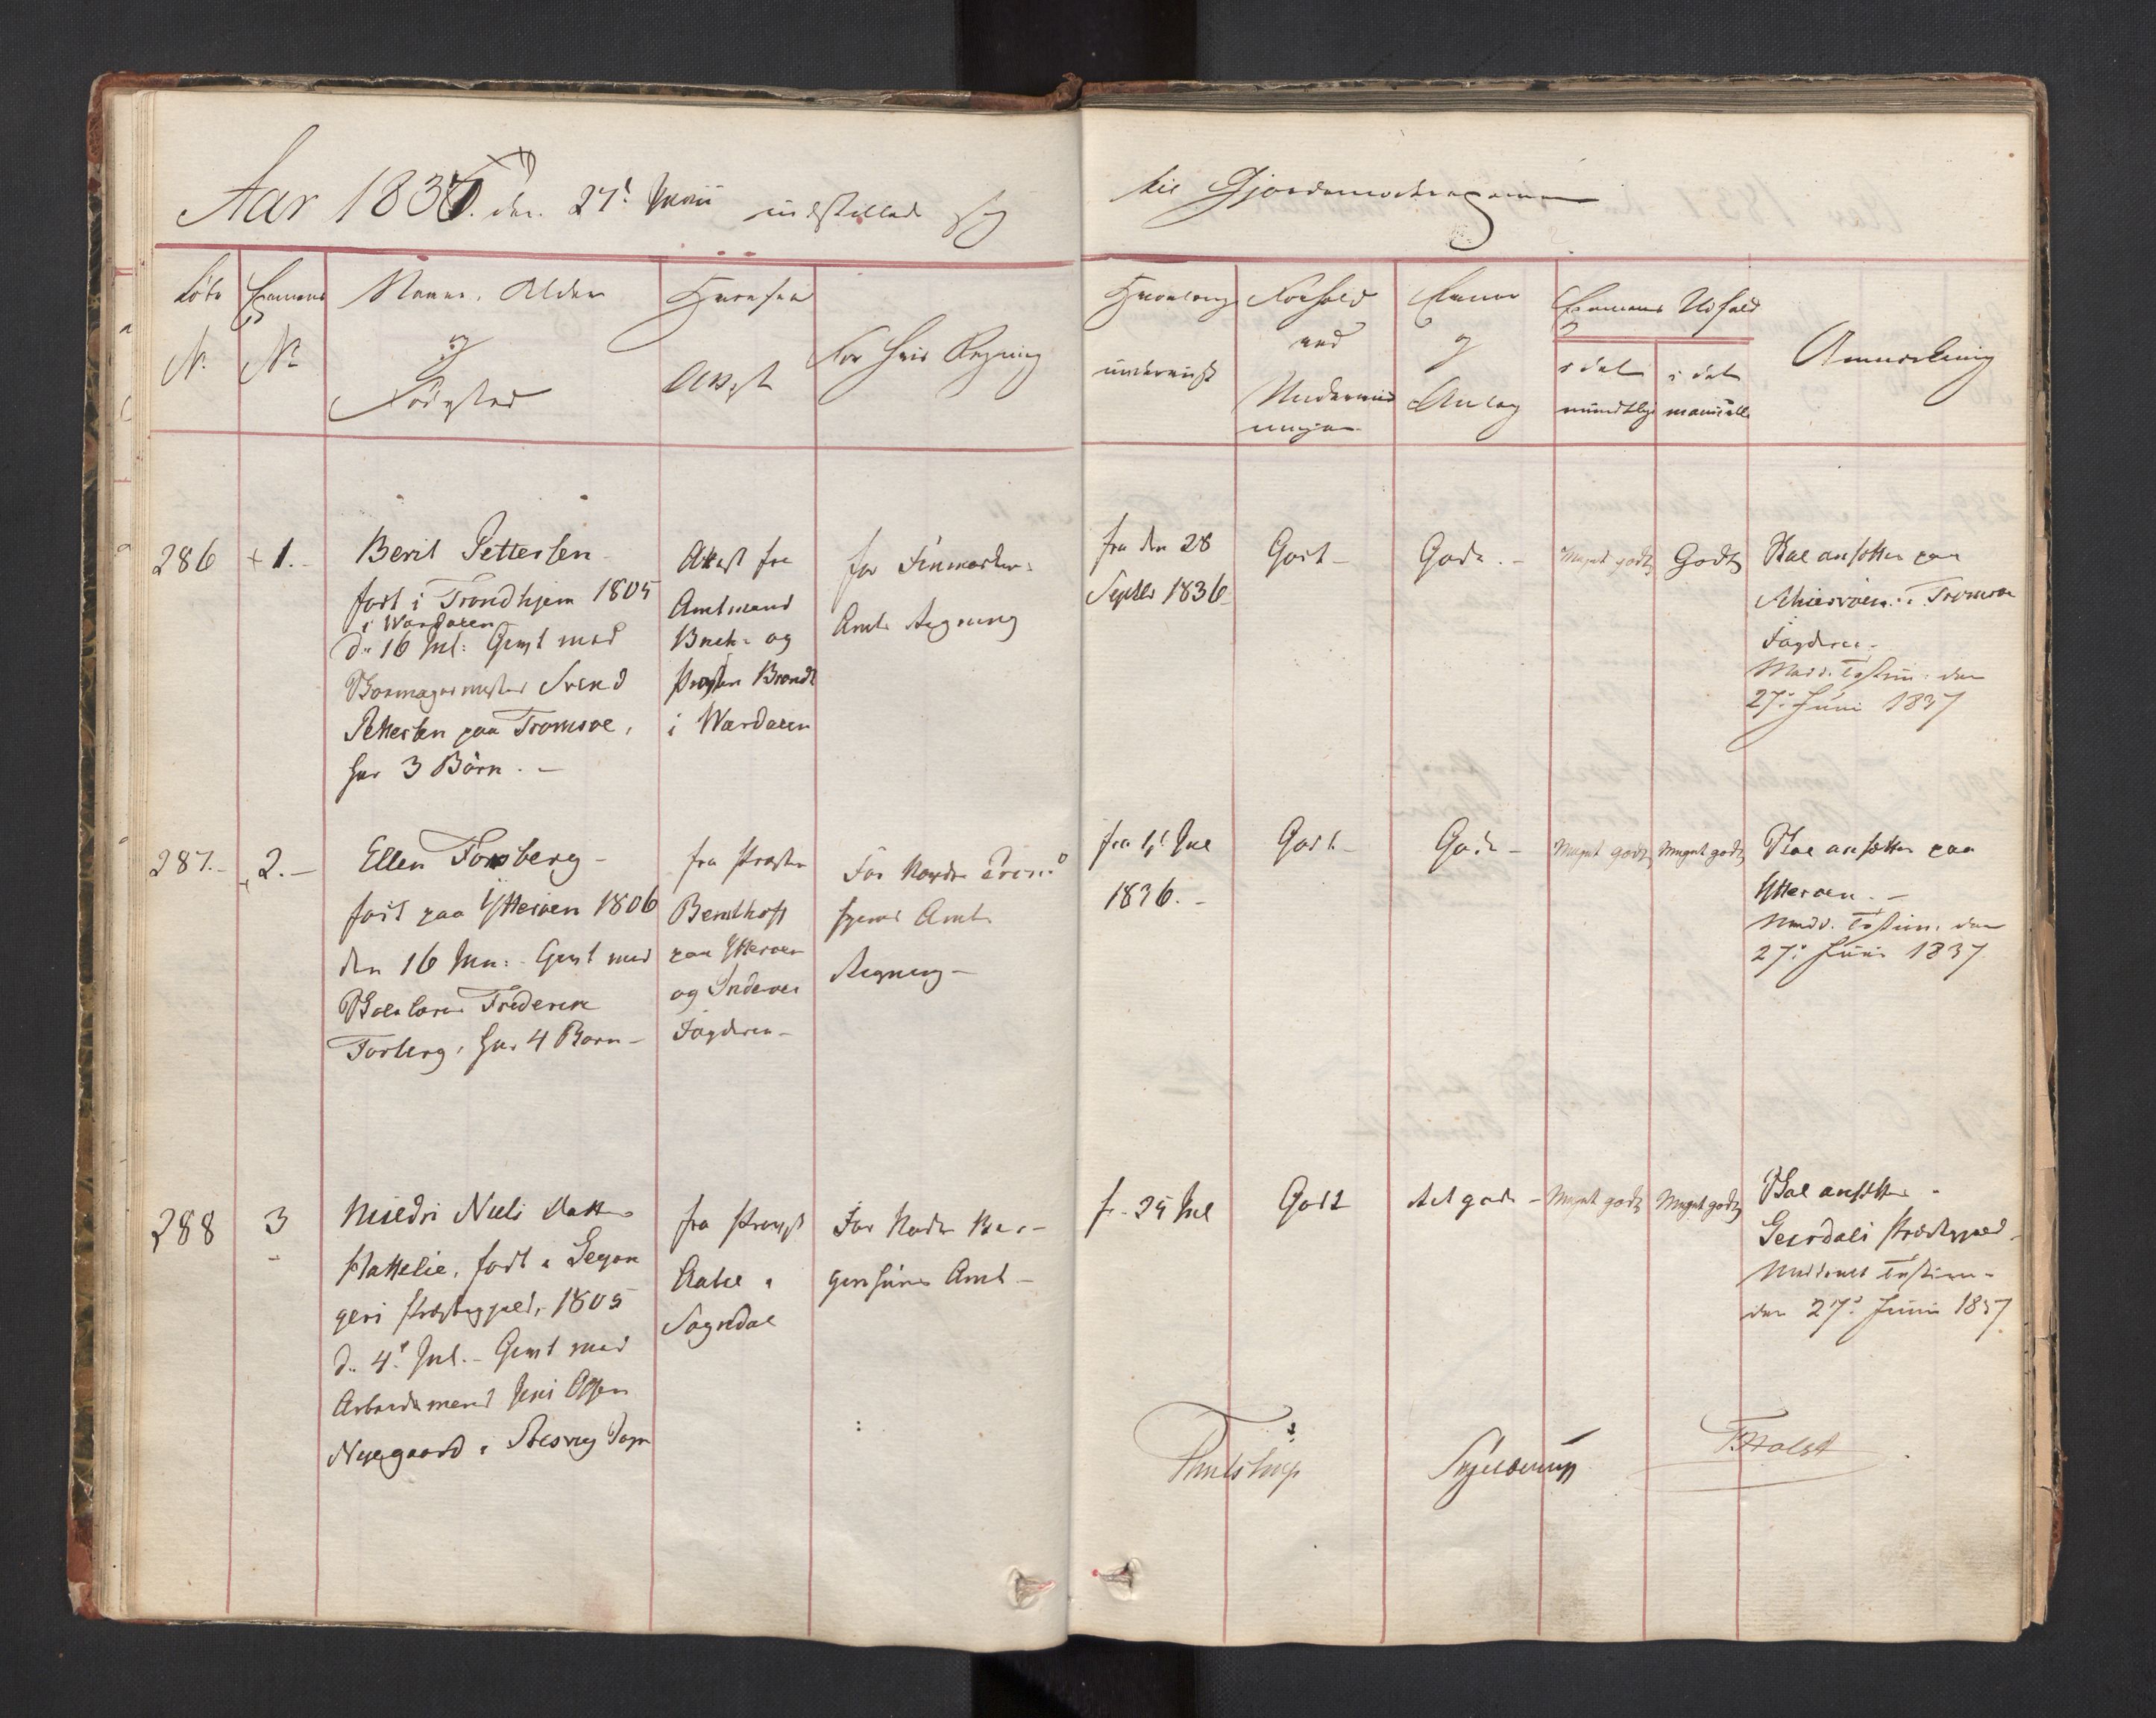 Aar 1836. den 27d Junii indstillede sig
til Gjordemoderexamen
Löbe
N.
Examens
No
Navne, Alder
og
Födested
Hvorfra
Attest
For hvis Regning
Hvorlænge
underviist
Forhold
ved
Underviis
ningen
Evner
og
Anlæg
Examens Udfald
i det
mundtlige
i det
manuelle
Anmærkning
286
+ 1.
Berit Pettersen
født i Trondhjem 1805
i Wærdalen
d. 16 Jul: Givt med
Svend
Pettersen paa Tromsøe,
har 3 Börn. -
Attest fra
Amtmand
Buch- og
Præsten Brandt
i Wærdalen
for Finmarkens
Amts Regning
fra den 28
Septbr 1836
Godt -
Gode. -
Meget godt
Godt
Skal ansættes paa
Tromsøe
Fogderie -
Medd. Testim: den
27. Juni 1837
287. -
2. -
Ellen Forsberg -
født paa Ytterøen 1806
den 16 Jun: - Givt med
Frederik
Forsberg, har 4 Børn -
fra Præsten
paa Ytterøen
og Inderøes
Fogderie -
For Nordre Trond
hjems Amts
Regning -
fra 1d Jul
1836. -
Godt -
Gode -
Meget godt
Meget godt
Skal ansættes paa
Ytterøen. -
Medd. Testim. den
27. Juni 1837
288
3
Niels Datter
født i Legan
gers Præstegjeld, 1805
d. 4. Jul. - Givt med
Arbeidsmand Jens Olsen
Nyegaard i
fra Provst
i
Sogndal
For Nordre Ber-
genhuus Amt -
fr. 25 Jul
Godt
Ret gode -
Meget godt
Meget godt
Skal ansættes i
Præstegjeld -
Meddeelt Testim -
den 27. Juni 1837
Thulstrup
Skjelderup
F Holst